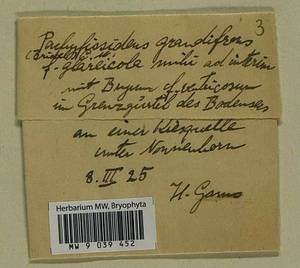 3
Pachyfissidens grandifrons
(Bridel) L.
f. glareicola mihi ad interim
mit Bryum cf. ventricosum
im Grenzgürtel des Bodensees
an einer Kiesquelle
unter Nonnenhorn
8. III 25
H. Gams
Herbarium MW, Bryophyta
MW 9 039 452